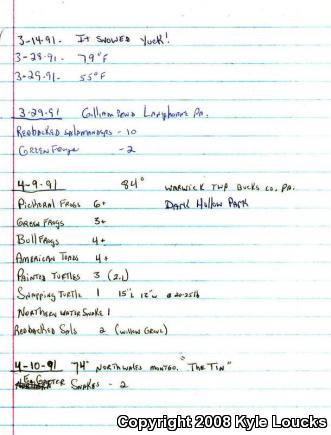 3-14-91- It snowed Yuck!
3-28-91- 79°F
3-29-91- 55°F
3-29-91 Langhorne PA.
Redbacked salamanders - 10
Green Frogs - 2
4-9-91 84° Warwick Twp Bucks Co, PA.
Pickeral Frogs 6+ Dark Hollow Park
Green Frogs 3+
Bull Frogs 4+
American Toads 4+
Painted Turtles 3 (2.1)
Snapping Turtle 1 15"L 12"W @ 20-25 lb
Northern Water Snake 1
Redbacked Sals 2 (Willow Grove)
4-10-91 74° North Wales Montgo. "The Tin"
Garter Snakes - 2
Copyright 2008 Kyle Loucks